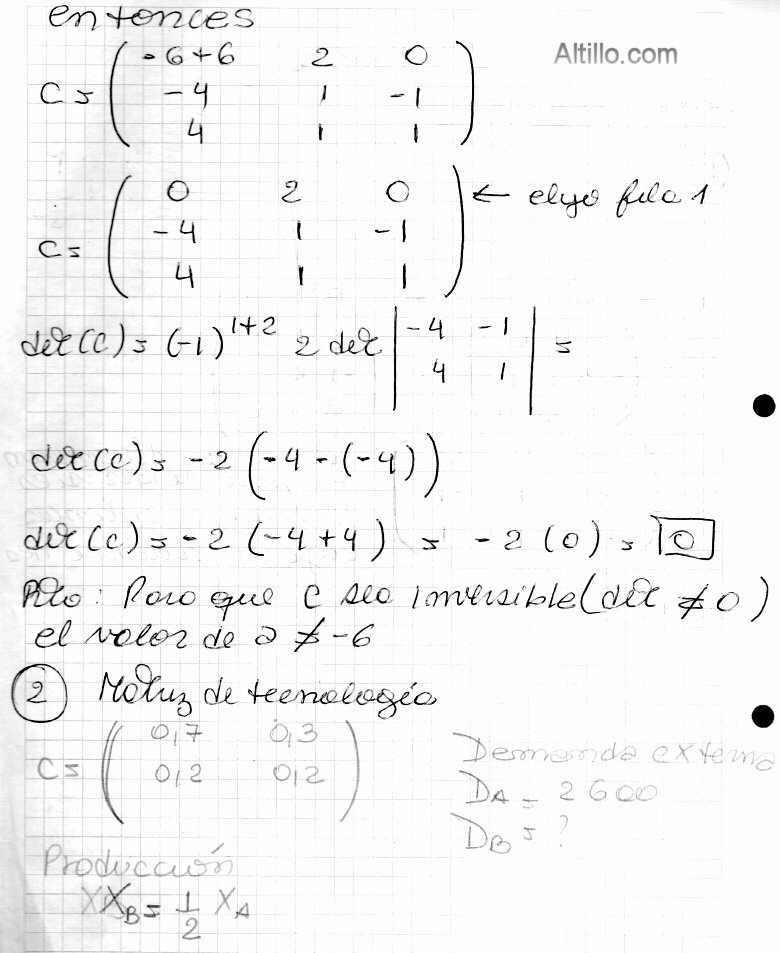 entonces
Altillo.com
C = ( -6+6 2 0
-4 1 -1
4 1 1 )
C = ( 0 2 0
-4 1 -1
4 1 1 ) ← elijo fila 1
det(C) = (-1)^1+2 2 det | -4 -1
4 1 | =
det(C) = -2 (-4 - (-4))
det(C) = -2 (-4+4) = -2 (0) = 0
Rta: Para que C sea inversible (det ≠ 0)
el valor de a ≠ -6
2 Matriz de tecnología
C = ( 0,7 0,3
0,2 0,2 )
Demanda externa
DA = 2600
DB = ?
Producción
XB = 1/2 XA